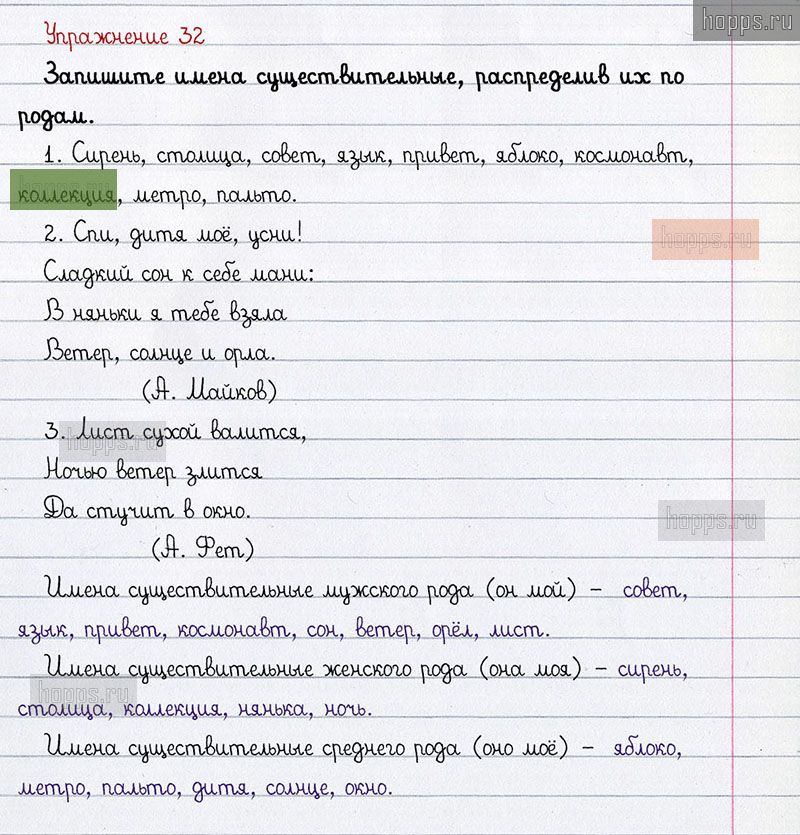 hopps.ru
Упражнение 32
Запишите имена существительные, распределив их по
родам.
1. Сирень, столица, совет, язык, привет, яблоко, космонавт,
коллекция, метро, пальто.
2. Спи, дитя моё, усни!
hopps.ru
Сладкий сон к себе мани:
В няньки я тебе взяла
Ветер, солнце и орла.
(А. Майков)
3. Лист сухой валится,
hopps.ru
Ночью ветер злится
Да стучит в окно.
hopps.ru
(А. Фет)
Имена существительные мужского рода (он мой) – совет,
язык, привет, космонавт, сон, ветер, орёл, лист.
Имена существительные женского рода (она моя) – сирень,
hopps.ru
столица, коллекция, нянька, ночь.
Имена существительные среднего рода (оно моё) – яблоко,
метро, пальто, дитя, солнце, окно.